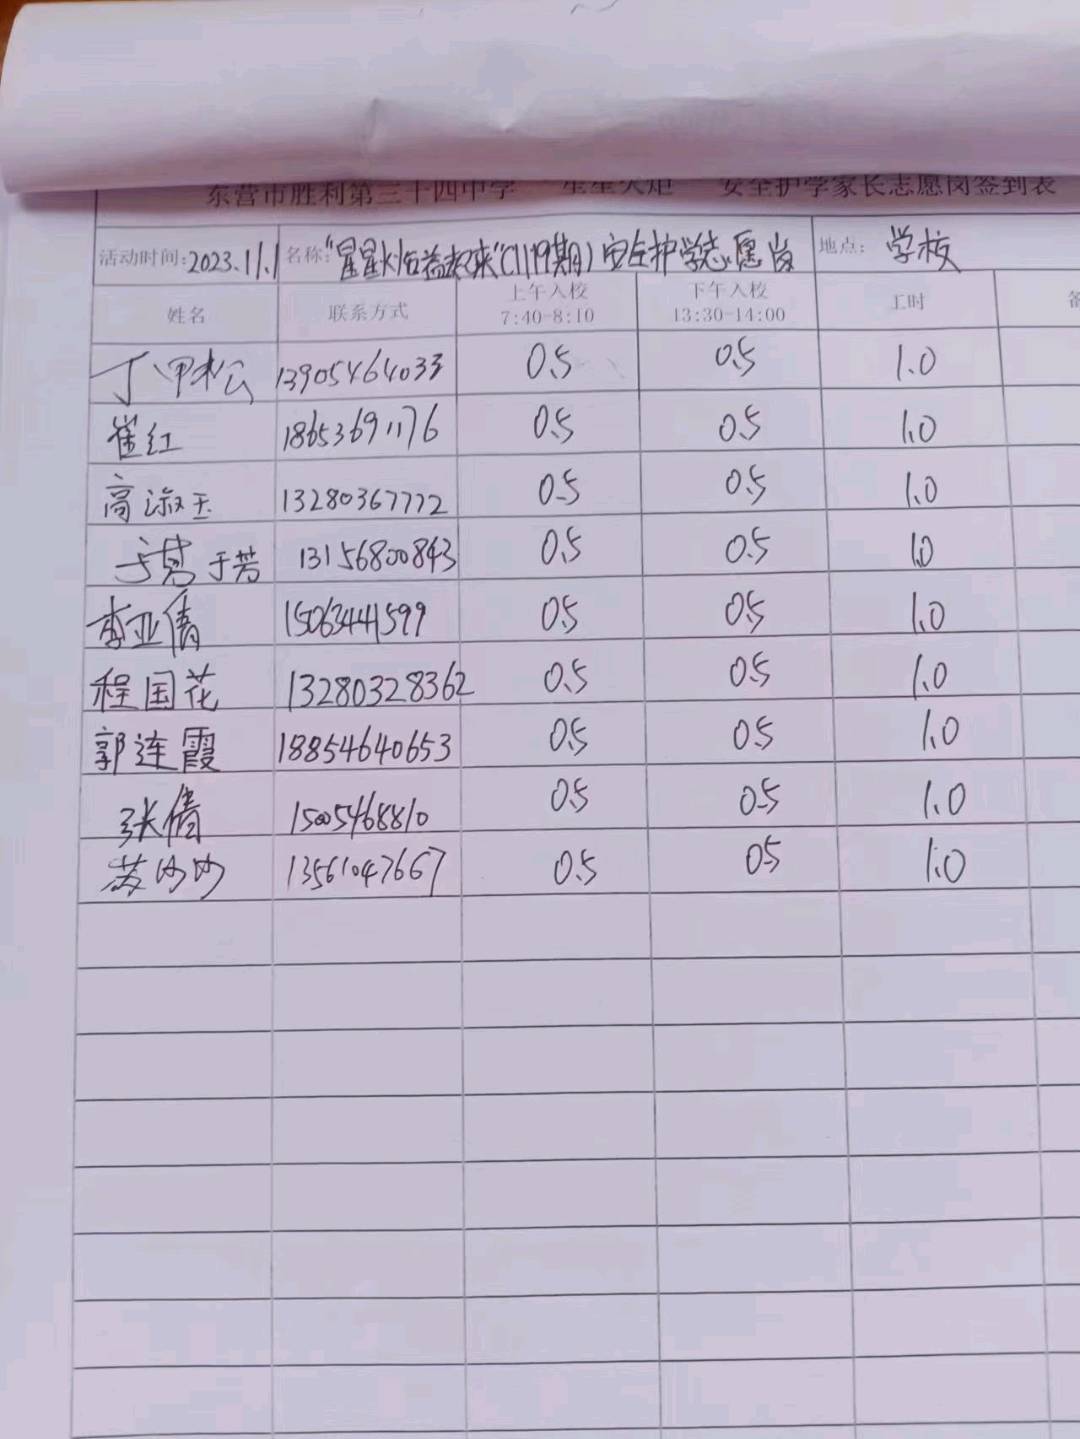 东营市胜利第三十四中学 星星火炬 安全护学家长志愿岗签到表
活动时间:2023.11.1 名称:"星星火炬益起来"(1119期)安全护学志愿岗 地点: 学校
姓名 联系方式 上午入校 7:40-8:10 下午入校 13:30-14:00 工时
丁甲松 13905464033 0.5 0.5 1.0
崔红 18653691176 0.5 0.5 1.0
高淑玉 13280367772 0.5 0.5 1.0
于芳 13156800843 0.5 0.5 1.0
李亚倩 15063441599 0.5 0.5 1.0
程国花 13280328362 0.5 0.5 1.0
郭连霞 18854640653 0.5 0.5 1.0
张倩 15005468810 0.5 0.5 1.0
苏沙沙 13561047667 0.5 0.5 1.0